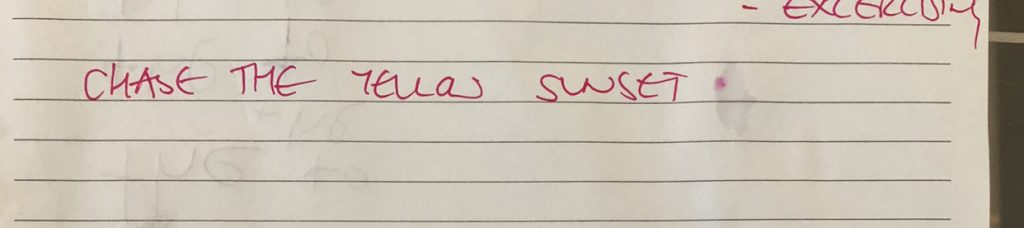 CHASE THE YELLOW SUNSET.